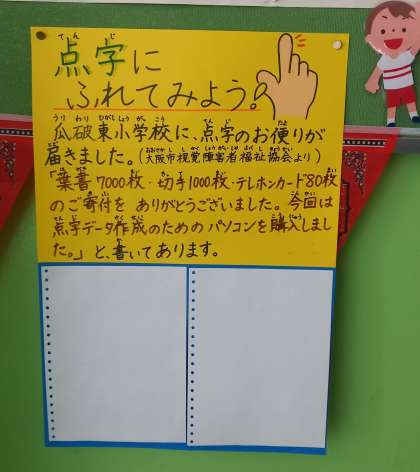 点字に
ふれてみよう。
瓜破東小学校に、点字のお便りが
届きました。(大阪市視覚障害者福祉協会より)
「葉書7000枚・切手1000枚・テレホンカード80枚
のご寄付を ありがとうございました。今回は
点字データ作成のためのパソコンを購入しまし
た。」と、書いてあります。